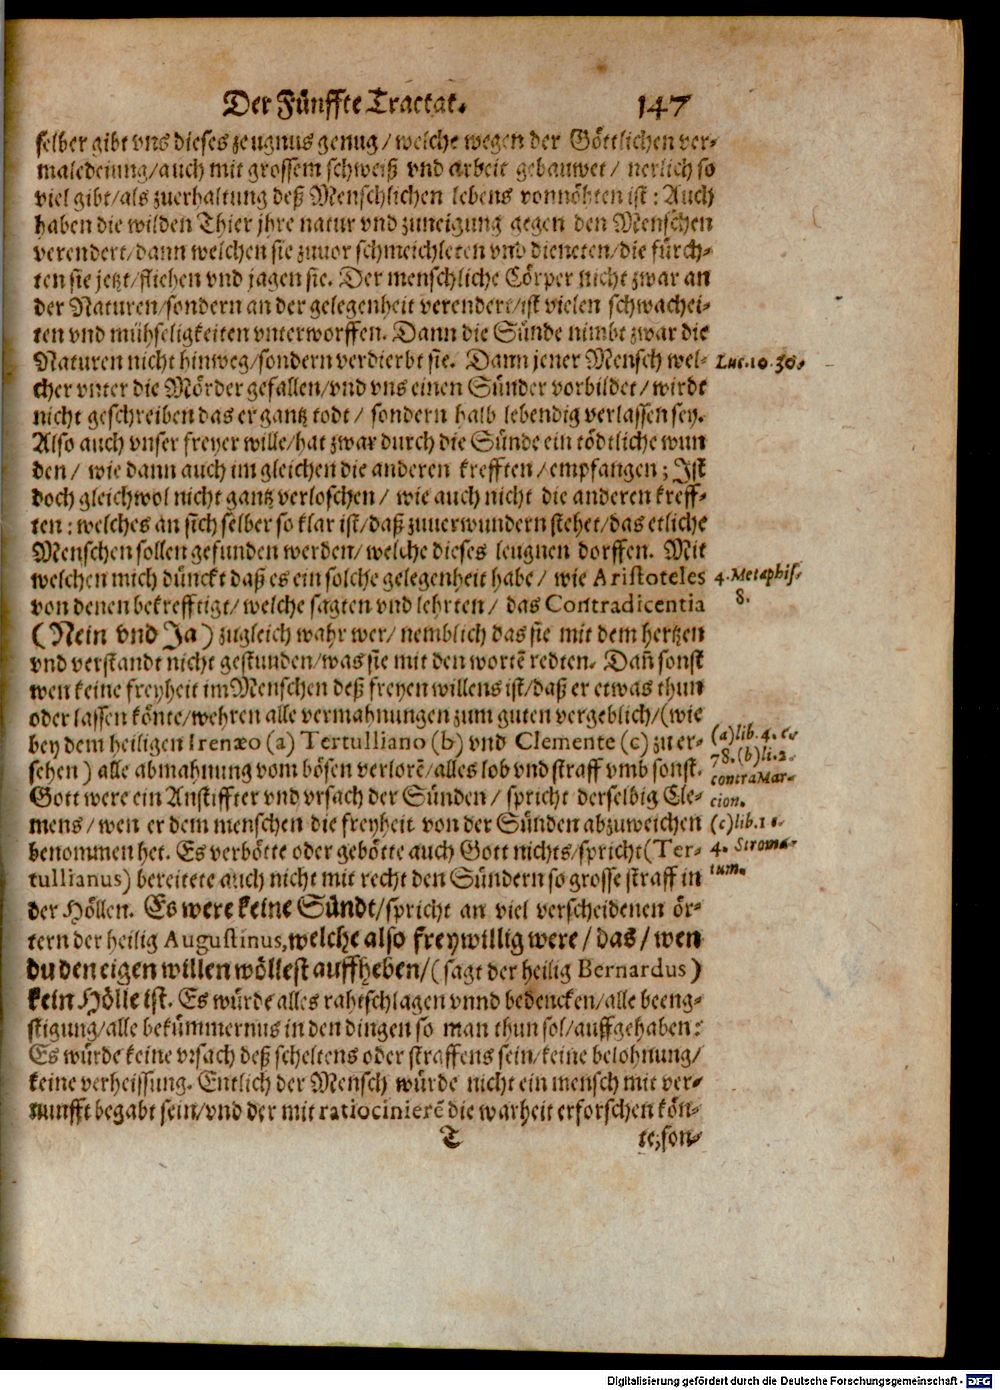 Der Fünffte Tractat. 147
selber gibt vns dieses zeugnus genug/ welche wegen der Göttlichen ver-
maledeiung/auch mit grossem schweiß vnd arbeit gebauwet/ nerlich so
viel gibt/als zuerhaltung deß Menschlichen lebens vonnöhten ist: Auch
haben die wilden Thier jhre natur vnd zuneigung gegen den Menschen
verendert/dann welchen sie zuuor schmeichleten vnd dieneten/die fürch-
ten sie jetzt/fliehen vnd jagen sie. Der menschliche Cörper nicht zwar an
der Naturen/sondern an der gelegenheit verendert/ist vielen schwachei-
ten vnd mühseligkeiten vnterworffen. Dann die Sünde nimbt zwar die
Naturen nicht hinweg/sondern verdierbt sie. Dann jener Mensch wel-
cher vnter die Mörder gefallen/vnd vns einen Sünder vorbildet/ wirdt
nicht geschreiben das er gantz todt/ sondern halb lebendig verlassen sey.
Also auch vnser freyer wille/hat zwar durch die Sünde ein tödtliche wun
den/ wie dann auch im gleichen die anderen krefften/empfangen; Ist
doch gleichwol nicht gantz verloschen/ wie auch nicht die anderen kreff-
ten: welches an sich selber so klar ist/daß zuuerwundern stehet/das etliche
Menschen sollen gefunden werden/ welche dieses leugnen dorffen. Mit
welchen mich dünckt daß es ein solche gelegenheit habe/ wie Aristoteles
von denen bekrefftigt/ welche sagten vnd lehrten/ das Contradicentia
(Nein vnd Ja) zugleich wahr wer/ nemblich das sie mit dem hertzen
vnd verstandt nicht gestunden/was sie mit den wortē redten. Dañ sonst
wen keine freyheit im Menschen deß freyen willens ist/daß er etwas thun
oder lassen könte/wehren alle vermahnungen zum guten vergeblich/(wie
bey dem heiligen Irenæo (a) Tertulliano (b) vnd Clemente (c) zu er-
sehen) alle abmahnung vom bösen verlorē/alles lob vnd straff vmb sonst.
Gott were ein Anstiffter vnd vrsach der Sünden/ spricht derselbig Cle-
mens/ wen er dem menschen die freyheit von der Sünden abzuweichen
benommen het. Es verbötte oder gebötte auch Gott nichts/spricht(Ter-
tullianus) bereitete auch nicht mit recht den Sündern so grosse straff in
der Höllen. Es were keine Sündt/spricht an viel verscheidenen ör-
tern der heilig Augustinus,welche also freywillig were/ das/ wen
du den eigen willen wöllest auffheben/(sagt der heilig Bernardus)
kein Hölle ist. Es würde alles rahtschlagen vnnd bedencken/alle beeng-
stigung/alle bekümmernus in den dingen so man thun sol/auffgehaben:
Es würde keine vrsach deß scheltens oder straffens sein/keine belohnung/
keine verheissung. Entlich der Mensch würde nicht ein mensch mit ver-
nunfft begabt sein/vnd der mit ratiocinierē die warheit erforschen kön-
T te/son-
Luc. 10. 30.
4. Metaphis.
8.
(a)lib. 4. c.
78. (b)li. 2.
contra Mar-
cion.
(c)lib. 1.
4. Stroma-
tum.
Digitalisierung gefördert durch die Deutsche Forschungsgemeinschaft - DFG